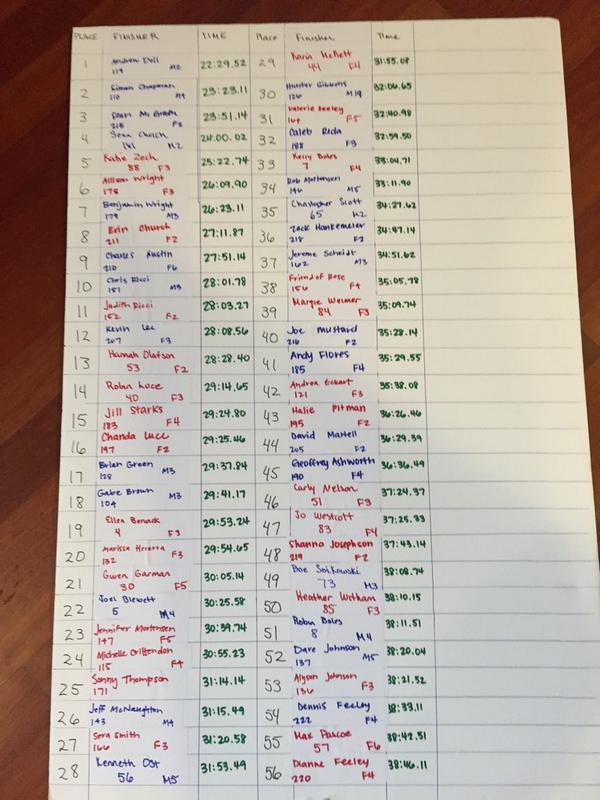 PLACE FINISHER TIME Place Finisher Time
1 Andrew Doll 22:29.52
119 M2
2 Simon Chapman 23:23.11
110 M4
3 Sean McGrath 23:51.14
215 F2
4 Sean Church 24:00.02
141 M2
5 Katie Zech 25:22.74
88 F3
6 Allison Wright 26:09.90
178 F3
7 Benjamin Wright 26:23.11
179 M3
8 Erin Church 27:11.87
211 F2
9 Charles Austin 27:51.14
210 F6
10 Chris Ricci 28:01.78
151 M3
11 Judith Ricci 28:03.27
152 F2
12 Kevin Lee 28:08.56
207 F3
13 Hannah Olafson 28:28.40
53 F2
14 Robin Luce 29:14.65
40 F3
15 Jill Starks 29:24.80
183 F4
16 Chanda Luce 29:25.46
197 F2
17 Brian Green M3 29:37.84
128
18 Gabe Brown M3 29:41.17
104
19 Ellen Benack 29:53.24
4 F3
20 Marissa Herrera F3 29:54.65
132
21 Gwen Garman 30:05.14
30 F5
22 Joel Blewett 30:25.58
5 M4
23 Jennifer Mortensen 30:39.74
147 F5
24 Michelle Crittendon 30:55.23
115 F4
25 Sonny Thompson 31:14.14
171
26 Jeff McNaughton 31:15.49
143 M4
27 Sera Smith 31:20.58
166 F3
28 Kenneth Ost 31:53.49
56 M5
29 Karin 31:55.08
44 F4
30 Hunter Gibbons 32:06.65
126 M19
31 Valerie Seeley 32:40.98
164 F5
32 Caleb Reda 32:59.50
188 F3
33 Kerry Boles 33:04.71
7 F4
34 Rob Mortensen 33:11.90
146 M5
35 Christopher Scott 34:27.62
65 M2
36 Zack Hankemeier 34:47.14
218 F2
37 Jereme Scheidt 34:51.62
162 M3
38 Friend of Rose 35:05.78
156 F4
39 Margie Weimer 35:09.74
84 F3
40 Joe Mustard 35:28.14
216 F2
41 Andy Flores 35:29.55
185 F4
42 Andrea Eckart 35:38.08
121 F3
43 Halie Pitman 36:26.46
195 F2
44 David Martell 36:29.39
205 F2
45 Geoffrey Ashworth 36:36.49
190 F4
46 Carly Nelson 37:24.37
51 F3
47 Jo Westcott 37:25.33
83 F4
48 Shanna Josephson 37:43.14
219 F2
49 Boe 38:08.74
73 M3
50 Heather Witham 38:10.15
85 F3
51 Robin Boles 38:11.51
8 M4
52 Dave Johnson 38:20.04
137 M5
53 Alyson Johnson 38:21.52
136 F3
54 Dennis Feeley 38:33.11
222 F4
55 Max Pascoe 38:42.51
57 F6
56 Dianne Feeley 38:46.11
220 F4